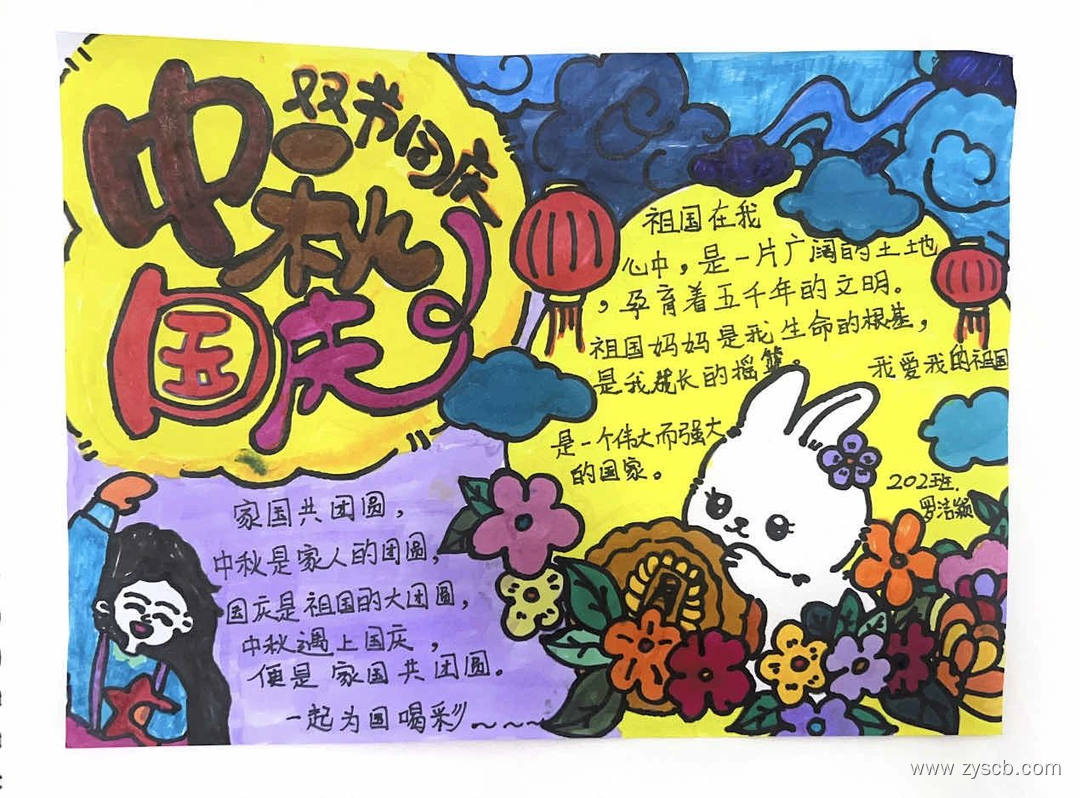 双节同庆
中秋
国庆
祖国在我
心中，是一片广阔的土地
，孕育着五千年的文明。
祖国妈妈是我生命的根基，
是我成长的摇篮。
我爱我的祖国
是一个伟大而强大
的国家。
202班.
罗洁颖
家国共团圆，
中秋是家人的团圆，
国庆是祖国的大团圆，
中秋遇上国庆，
便是家国共团圆。
一起为国喝彩~~~
月
www.zyscb.com